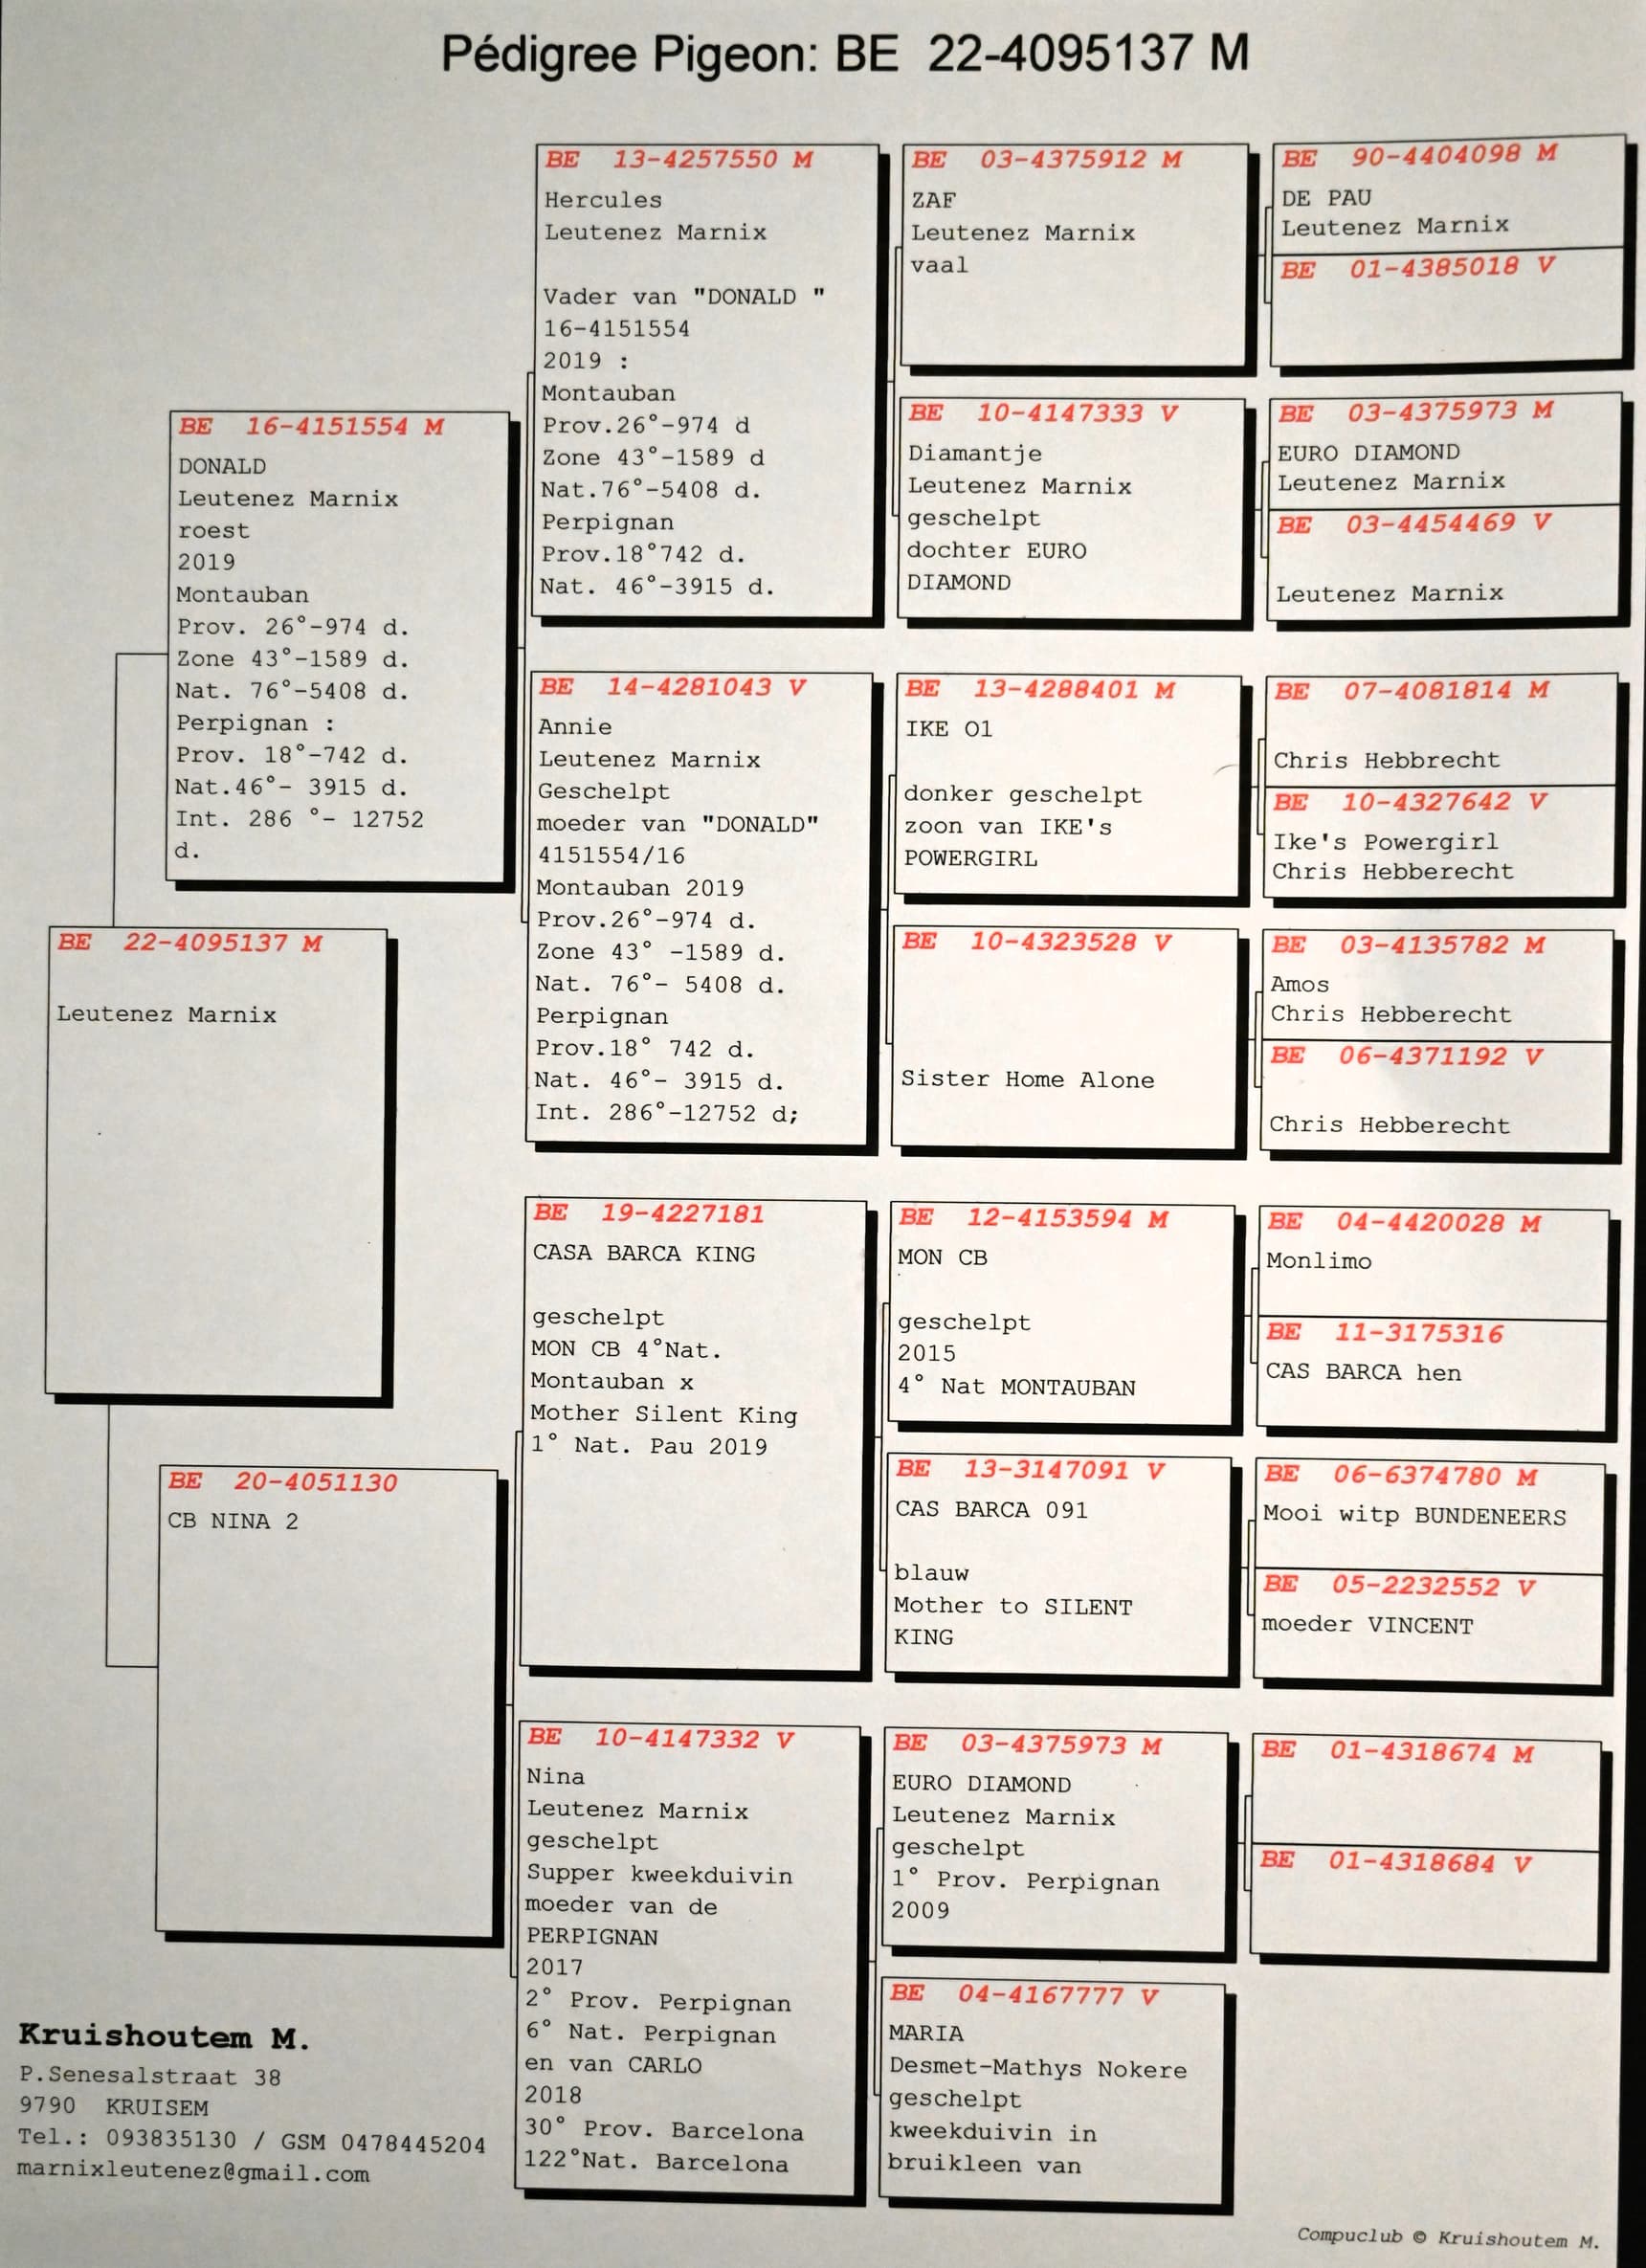 Pédigree Pigeon: BE 22-4095137 M
BE 22-4095137 M
Leutenez Marnix
BE 16-4151554 M
DONALD
Leutenez Marnix
roest
2019
Montauban
Prov. 26°-974 d.
Zone 43°-1589 d.
Nat. 76°-5408 d.
Perpignan :
Prov. 18°-742 d.
Nat.46°- 3915 d.
Int. 286 °- 12752
d.
BE 20-4051130
CB NINA 2
BE 13-4257550 M
Hercules
Leutenez Marnix
Vader van "DONALD "
16-4151554
2019 :
Montauban
Prov.26°-974 d
Zone 43°-1589 d
Nat.76°-5408 d.
Perpignan
Prov.18°742 d.
Nat. 46°-3915 d.
BE 14-4281043 V
Annie
Leutenez Marnix
Geschelpt
moeder van "DONALD"
4151554/16
Montauban 2019
Prov.26°-974 d.
Zone 43° -1589 d.
Nat. 76°- 5408 d.
Perpignan
Prov.18° 742 d.
Nat. 46°- 3915 d.
Int. 286°-12752 d;
BE 19-4227181
CASA BARCA KING
geschelpt
MON CB 4°Nat.
Montauban x
Mother Silent King
1° Nat. Pau 2019
BE 10-4147332 V
Nina
Leutenez Marnix
geschelpt
Supper kweekduivin
moeder van de
PERPIGNAN
2017
2° Prov. Perpignan
6° Nat. Perpignan
en van CARLO
2018
30° Prov. Barcelona
122°Nat. Barcelona
BE 03-4375912 M
ZAF
Leutenez Marnix
vaal
BE 10-4147333 V
Diamantje
Leutenez Marnix
geschelpt
dochter EURO
DIAMOND
BE 13-4288401 M
IKE O1
donker geschelpt
zoon van IKE's
POWERGIRL
BE 10-4323528 V
Sister Home Alone
BE 12-4153594 M
MON CB
geschelpt
2015
4° Nat MONTAUBAN
BE 13-3147091 V
CAS BARCA 091
blauw
Mother to SILENT
KING
BE 03-4375973 M
EURO DIAMOND
Leutenez Marnix
geschelpt
1° Prov. Perpignan
2009
BE 04-4167777 V
MARIA
Desmet-Mathys Nokere
geschelpt
kweekduivin in
bruikleen van
BE 90-4404098 M
DE PAU
Leutenez Marnix
BE 01-4385018 V
BE 03-4375973 M
EURO DIAMOND
Leutenez Marnix
BE 03-4454469 V
Leutenez Marnix
BE 07-4081814 M
Chris Hebbrecht
BE 10-4327642 V
Ike's Powergirl
Chris Hebberecht
BE 03-4135782 M
Amos
Chris Hebberecht
BE 06-4371192 V
Chris Hebberecht
BE 04-4420028 M
Monlimo
BE 11-3175316
CAS BARCA hen
BE 06-6374780 M
Mooi witp BUNDENEERS
BE 05-2232552 V
moeder VINCENT
BE 01-4318674 M
BE 01-4318684 V
Kruishoutem M.
P.Senesalstraat 38
9790 KRUISEM
Tel.: 093835130 / GSM 0478445204
marnixleutenez@gmail.com
Compuclub © Kruishoutem M.